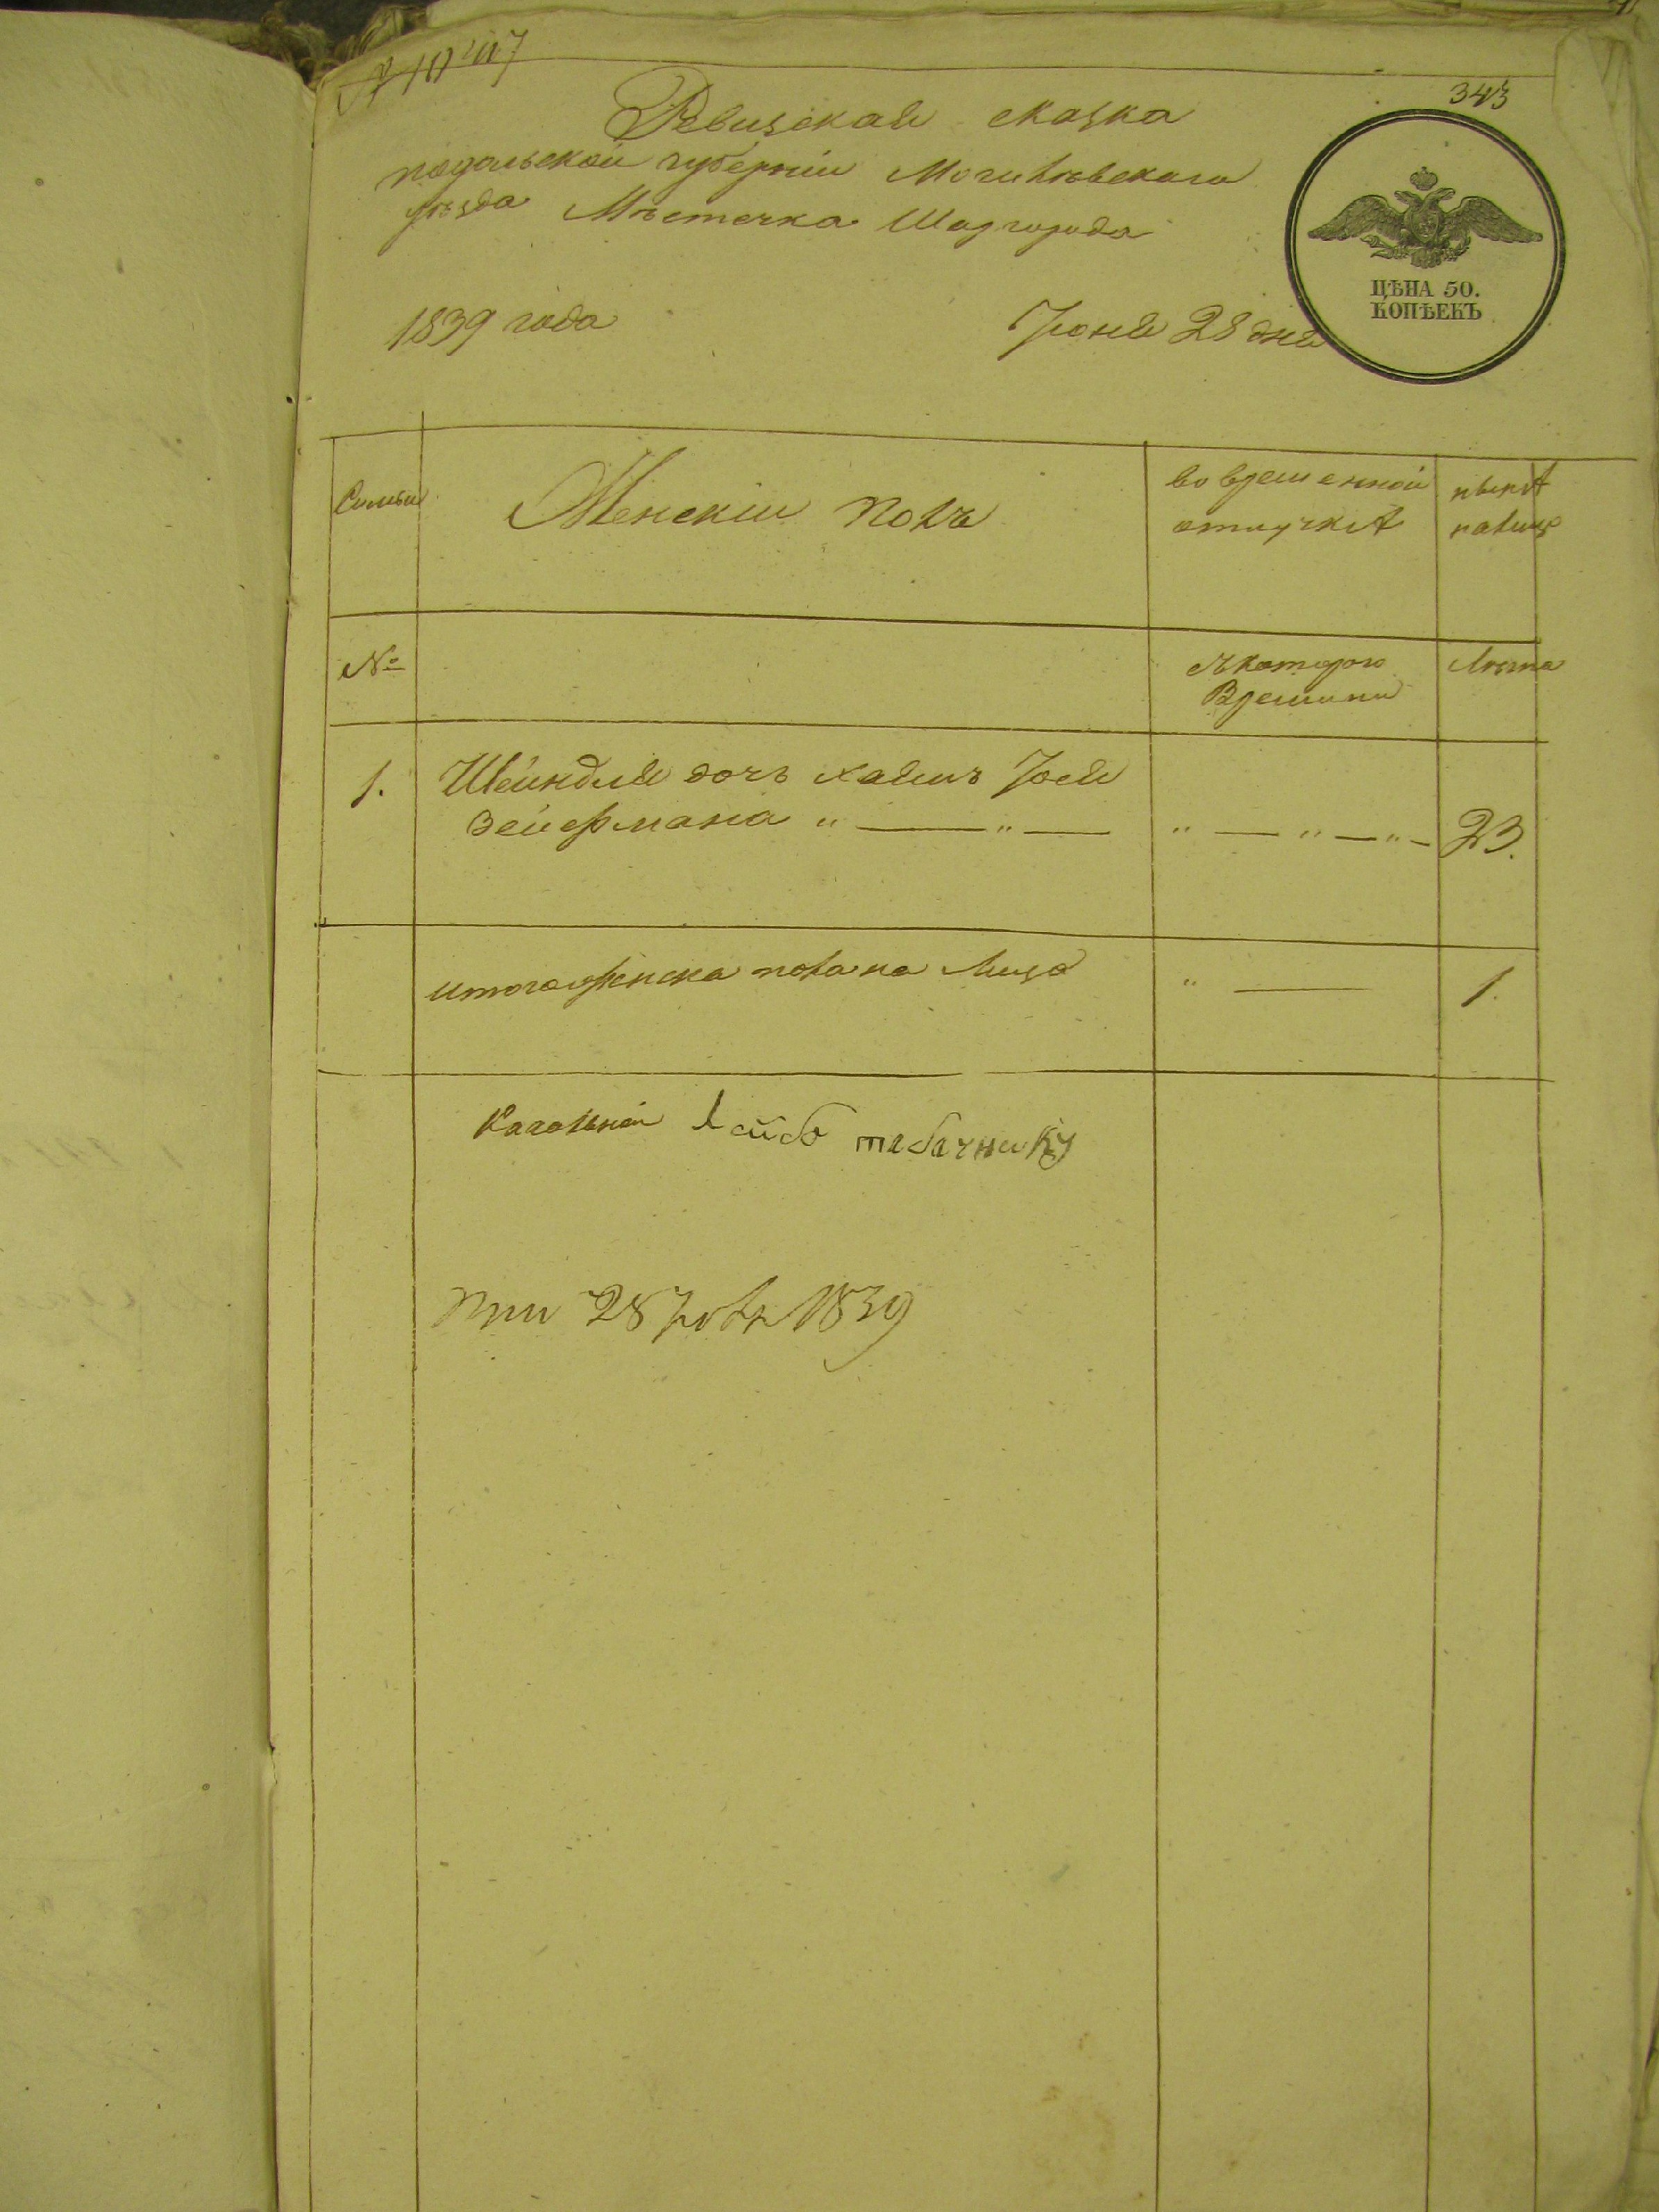 343
Ревизская сказка
подольской губернии Могилѣвскаго
уѣзда Мѣстечка Шаргорода
ЦѢНА 50.
КОПѢЕКЪ
1839 года Июня 28 дня
Семьи Женский полъ во временной отлучкѣ нынѣ налицо
№ съ котораго времени Лѣта
1. Шейндля дочь Хаимъ Іося
Зейфмана " — " — " — " — " — 23.
итого женска пола на лицо " — 1.
Кагальный Лейб табачнику
28 1839